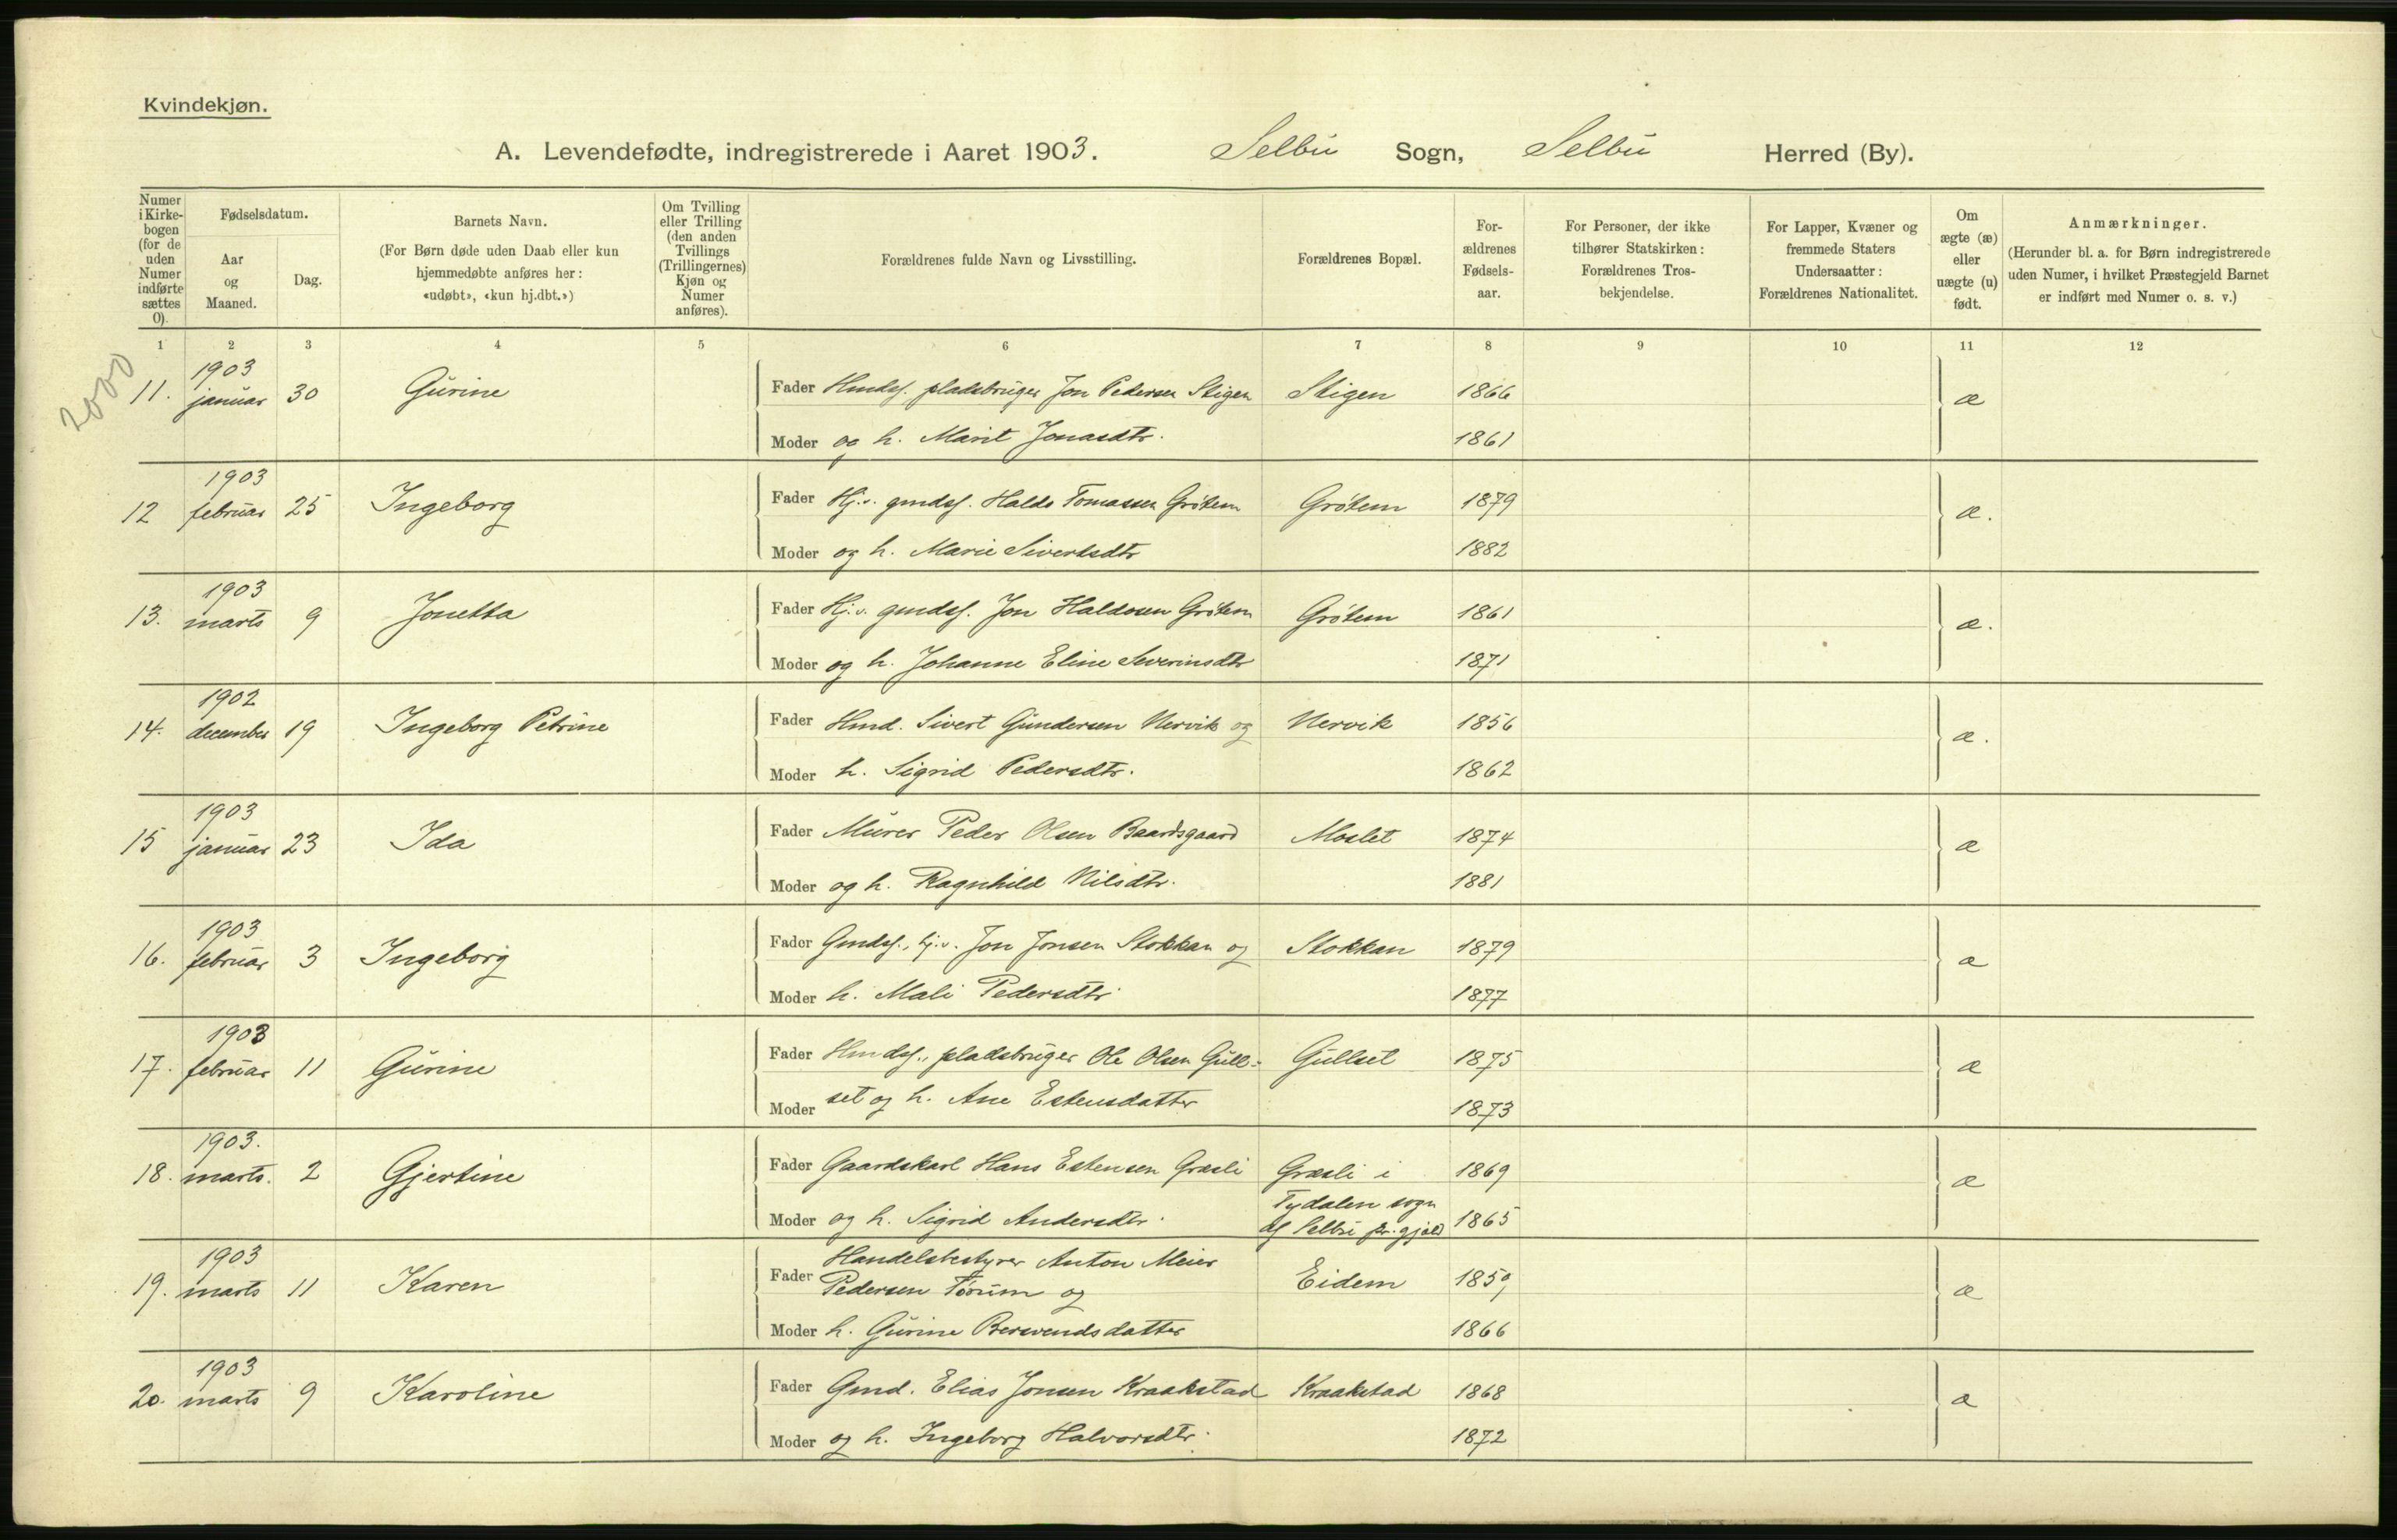 Kvindekjøn.
A. Levendefødte, indregistrerede i Aaret 1903. Selbu Sogn, Selbu Herred (By).
Numer i Kirkebogen (for de uden Numer indførte sættes 0).
Fødselsdatum.
Aar og Maaned.
Dag.
Barnets Navn.
(For Børn døde uden Daab eller kun
hjemmedøbte anføres her:
«udøbt», «kun hj.dbt.»)
Om Tvilling
eller Trilling
(den anden
Tvillings
(Trillingernes)
Kjøn og
Numer
anføres).
Forældrenes fulde Navn og Livsstilling.
Forældrenes Bopæl.
For-
ældrenes
Fødsels-
aar.
For Personer, der ikke
tilhører Statskirken:
Forældrenes Tros-
bekjendelse.
For Lapper, Kvæner og
fremmede Staters
Undersaatter:
Forældrenes Nationalitet.
Om
ægte (æ)
eller
uægte (u)
født.
Anmærkninger.
(Herunder bl. a. for Børn indregistrerede
uden Numer, i hvilket Præstegjeld Barnet
er indført med Numer o. s. v.)
1 2 3 4 5 6 7 8 9 10 11 12
2000
1903
11. januar 30 Gurine Fader Hmdsf. pladsbruger Jon Pedersen Stigen Stigen 1866 æ
Moder og h. Marit Jonasdtr. 1861
1903
12 februar 25 Ingeborg Fader Hj.v. gmdsf. Haldo Tomassen Grötem Grötem 1879 æ.
Moder og h. Marie Sivertsdtr 1882
1903
13. marts 9 Jonetta Fader Hj.v. gmdsf. Jon Haldosen Grötem Grötem 1861 æ.
Moder og h. Johanne Eline Severinsdtr 1871
1902
14. december 19 Ingeborg Petrine Fader Hmd. Sivert Gundersen Nervik og Nervik 1856 æ.
Moder h. Sigrid Pedersdtr. 1862
1903
15 januar 23 Ida Fader Murer Peder Olsen Baardsgaard Moslet 1874 æ
Moder og h. Ragnhild Nilsdtr. 1881
1903
16. februar 3 Ingeborg Fader Gmdsf., hj.v. Jon Jonsen Stokkan og Stokkan 1879 æ
Moder h. Mali Pedersdtr 1877
1903
17. februar 11 Gurine Fader Hmdsf., pladsbruger Ole Olsen Gull- Gullset 1875 æ
Moder set og h. Ane Estensdatter 1873
1903.
18. marts. 2 Gjertine Fader Gaardskarl Hans Estensen Græsli Græsli i 1869 æ
Tydalen sogn
Moder og h. Sigrid Andersdtr. af Selbu pr.gjæld 1865
1903
Handelsbestyrer Anton Meier
19. marts 11 Karen Fader Pedersen Torum og Eidem 1859 æ
Moder h. Gurine Berwendsdatter 1866
1903
20. marts 9 Karoline Fader Gmd. Elias Jonsen Kraakstad Kraakstad 1868 æ
Moder og h. Ingeborg Halvorsdtr. 1872